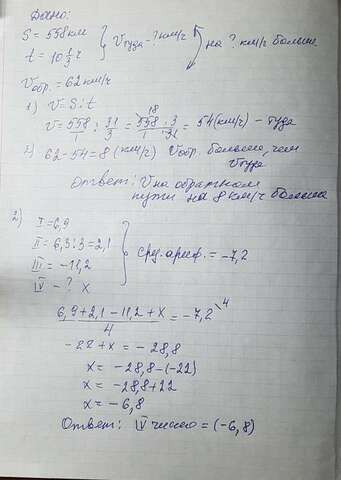 Дано:
S = 558км
t = 10 1/3 ч
Vтуда - ? км/ч
на ? км/ч больше
Vобр. = 62 км/ч
1) V = S : t
V = 558/1 : 31/3 = 558/1 · 3/31 = 54 (км/ч) - туда
18
2) 62 - 54 = 8 (км/ч) Vобр. больше, чем
Vтуда
Ответ: V на обратном
пути на 8 км/ч больше
2) I = 6,9
II = 6,3 : 3 = 2,1
III = -11,2
IV - ? x
сред. ариф. = -7,2
(6,9 + 2,1 - 11,2 + x)/4 = -7,2 \4
-22 + x = -28,8
x = -28,8 - (-22)
x = -28,8 + 22
x = -6,8
Ответ: IV число = (-6,8)